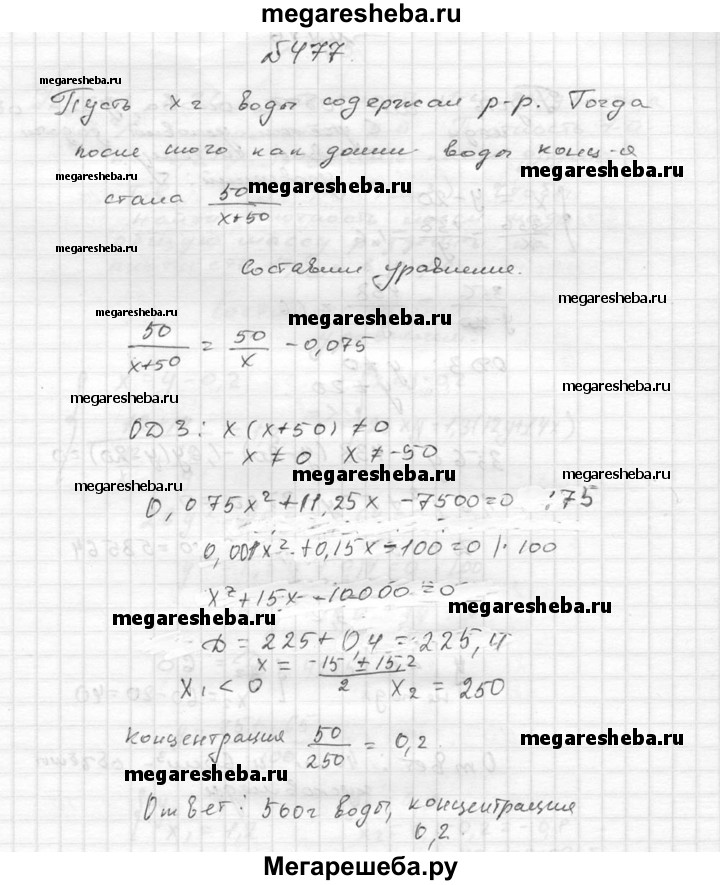 megaresheba.ru
№477.
megaresheba.ru
Пусть x г воды содержал р-р. Тогда
megaresheba.ru
после того как воды конц-я
megaresheba.ru
megaresheba.ru
megaresheba.ru
стала 50/(x+50)
megaresheba.ru
Составим уравнение.
megaresheba.ru
megaresheba.ru
50/(x+50) = 50/x - 0,075
megaresheba.ru
megaresheba.ru
ОДЗ: x(x+50) ≠ 0
x ≠ 0 x ≠ -50
megaresheba.ru
megaresheba.ru
0,075x² + 11,25x - 7500 = 0 :75
0,001x² + 0,15x - 100 = 0 |· 100
x² + 15x - 10000 = 0
megaresheba.ru
megaresheba.ru
D = 225 + 0,4 = 225,4
x = (-15 ± 15,2)/2
x₁ < 0 x₂ = 250
концентрация 50/250 = 0,2
megaresheba.ru
megaresheba.ru
Ответ: 560г воды, концентрация
0,2
Мегарешеба.ру